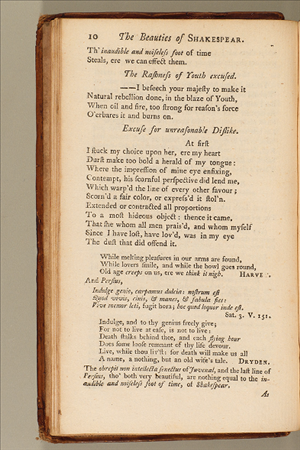 10 The Beauties of SHAKESPEAR.
Th' inaudible and noiseless foot of time
Steals, ere we can effect them.
The Rashness of Youth excused.
——I beseech your majesty to make it
Natural rebellion done, in the blaze of Youth,
When oil and fire, too strong for reason's force
O'erbears it and burns on.
Excuse for unreasonable Dislike.
At first
I stuck my choice upon her, ere my heart
Durst make too bold a herald of my tongue:
Where the impression of mine eye enfixing,
Contempt, his scornful perspective did lend me,
Which warp'd the line of every other favour;
Scorn'd a fair color, or express'd it stol'n.
Extended or contracted all proportions
To a most hideous object: thence it came,
That she whom all men prais'd, and whom myself
Since I have lost, have lov'd, was in my eye
The dust that did offend it.
While melting pleasures in our arms are found,
While lovers smile, and while the bowl goes round,
Old age creeps on us, ere we think it nigh. HARVEY.
And Persius,
Indulge genio, carpamus dulcia: nostrum est
Quod vivis, cinis, & manes, & fabula fies:
Vive memor leti, fugit hora; hoc quod loquor inde est.
Sat. 5. V. 151.
Indulge, and to thy genius freely give;
For not to live at ease, is not to live:
Death stalks behind thee, and each flying hour
Does some loose remnant of thy life devour.
Live, while thou liv'st: for death will make us all
A name, a nothing, but an old wife's tale. DRYDEN.
The obrepit non intellecta senectus of Juvenal, and the last line of
Persius, tho' both very beautiful, are nothing equal to the in-
audible and noiseless foot of time, of Shakespear.
As